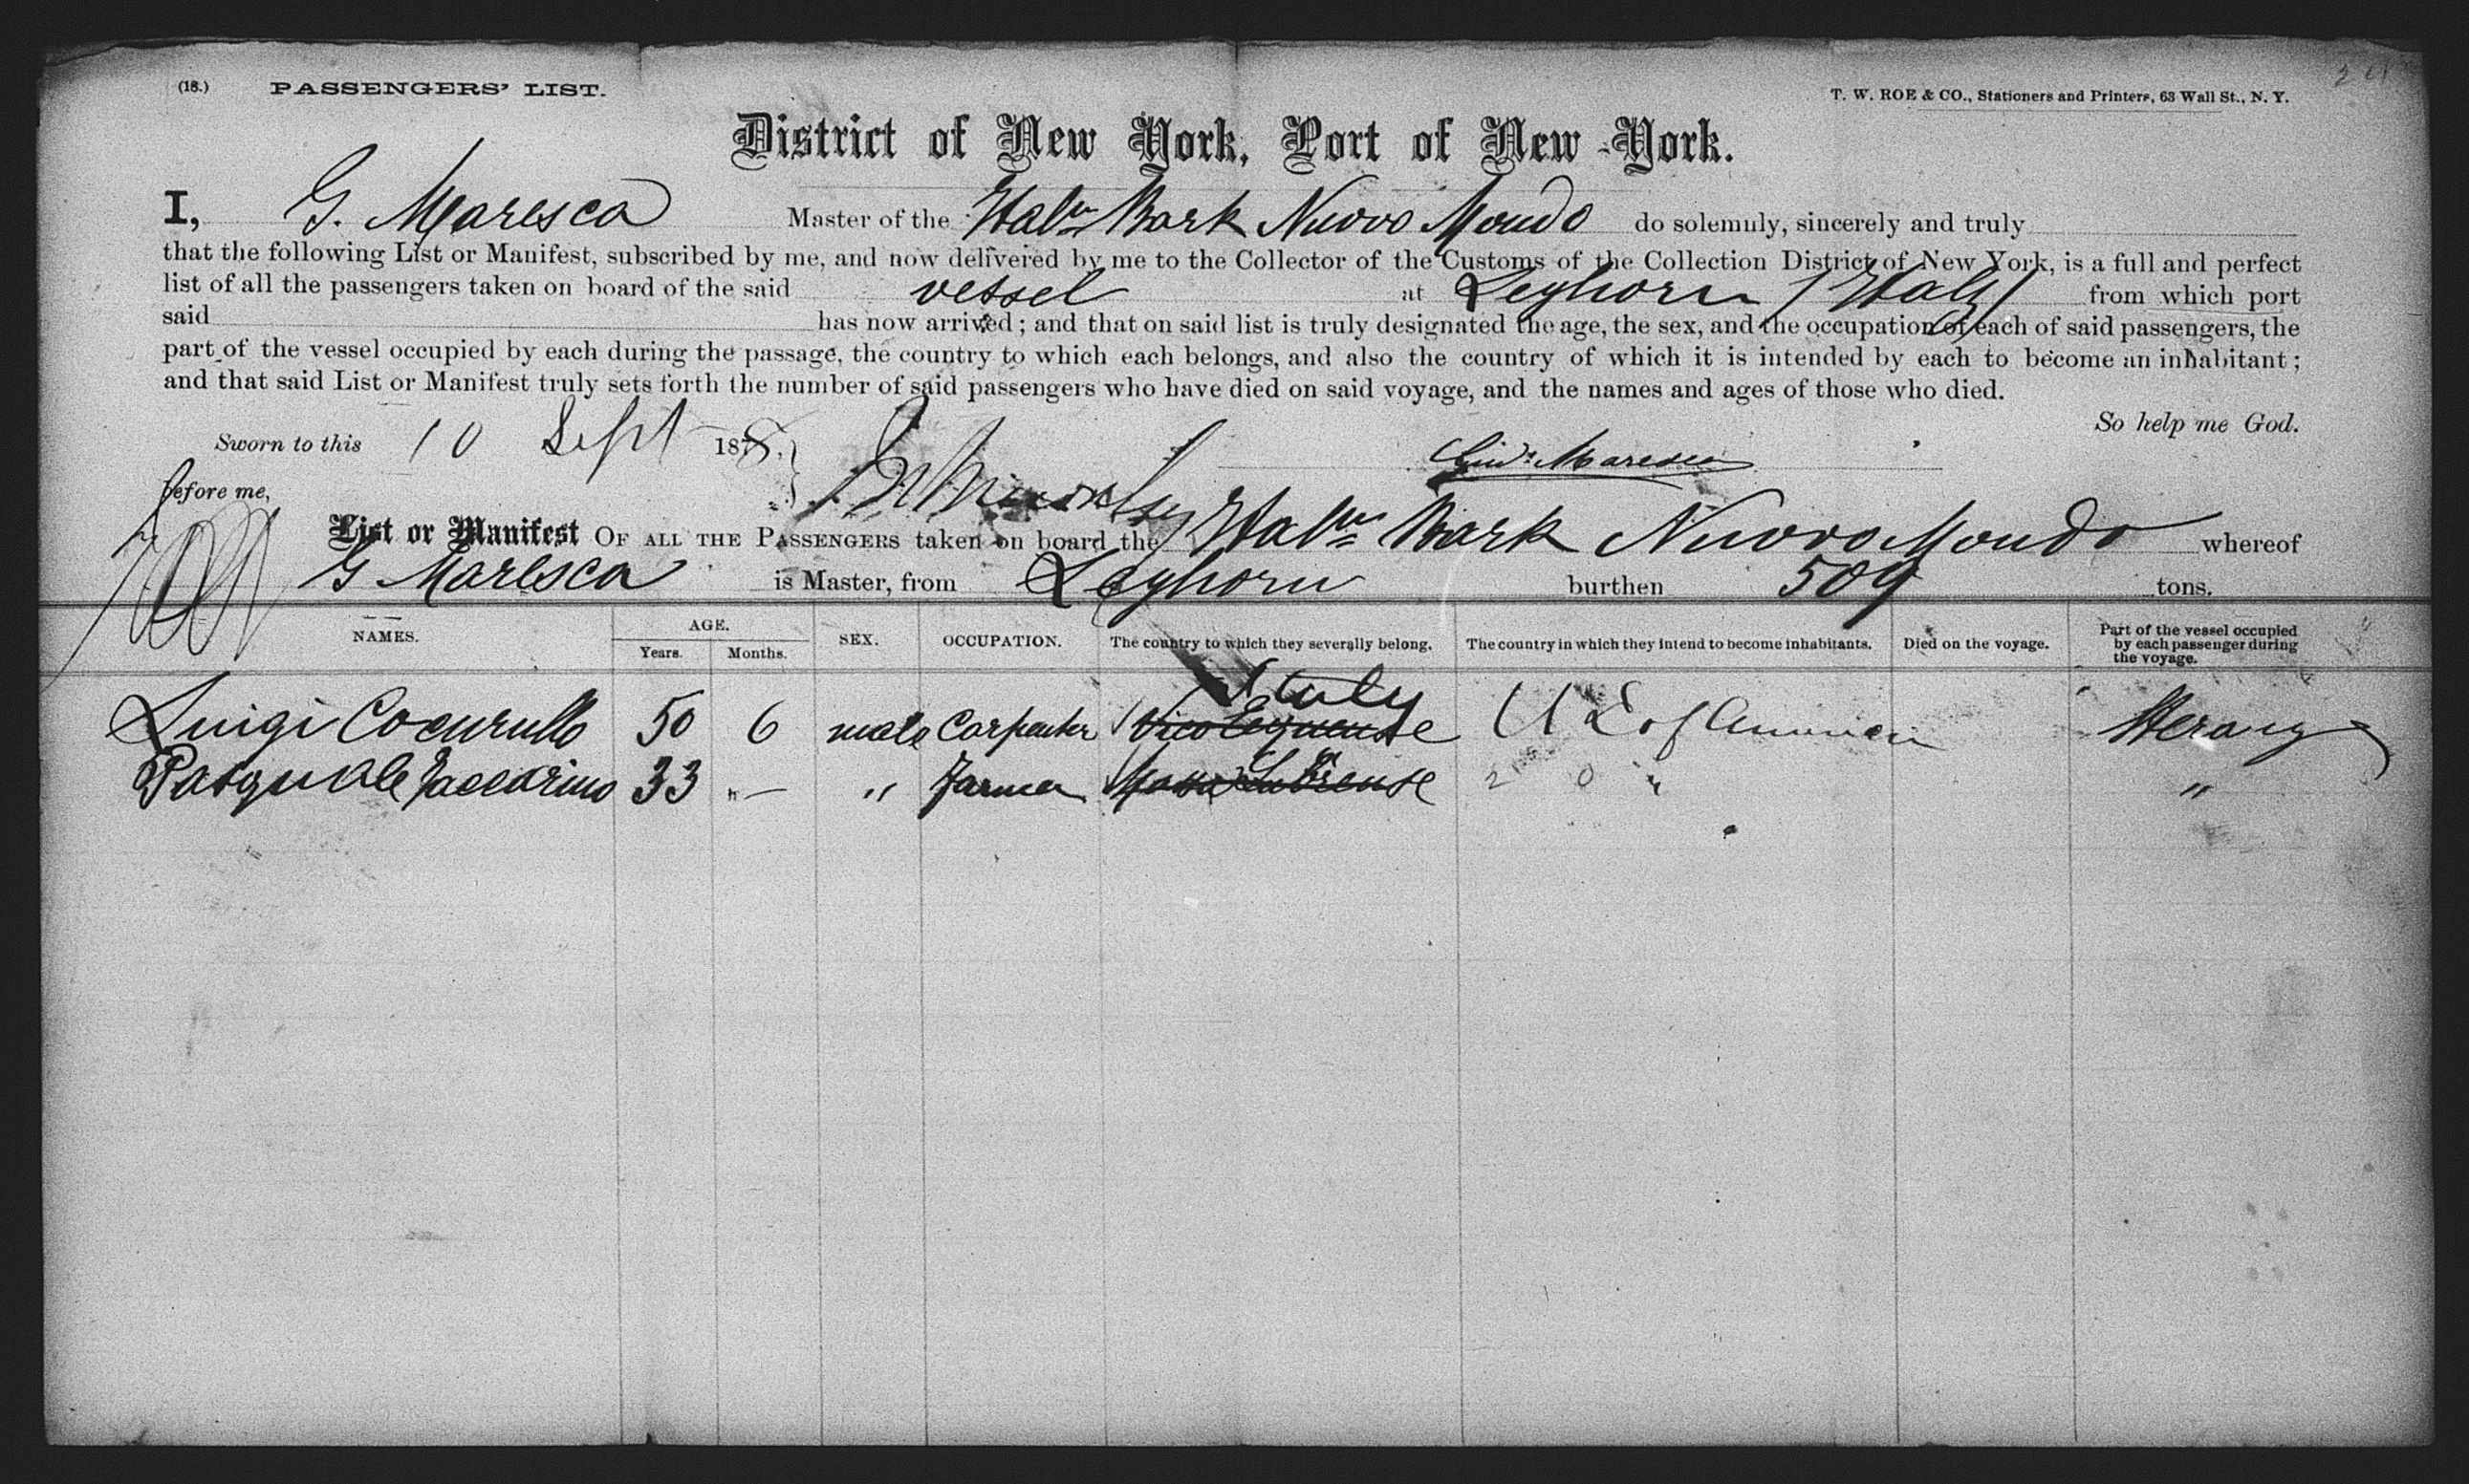 (18.) PASSENGERS' LIST.
T. W. ROE & CO., Stationers and Printers, 63 Wall St., N. Y.
District of New York, Port of New-York.
I, G. Maresca Master of the Italn Bark Nuovo Mondo do solemnly, sincerely and truly
that the following List or Manifest, subscribed by me, and now delivered by me to the Collector of the Customs of the Collection District of New York, is a full and perfect
list of all the passengers taken on board of the said vessel at Leghorn (Italy) from which port
said has now arrived; and that on said list is truly designated the age, the sex, and the occupation of each of said passengers, the
part of the vessel occupied by each during the passage, the country to which each belongs, and also the country of which it is intended by each to become an inhabitant;
and that said List or Manifest truly sets forth the number of said passengers who have died on said voyage, and the names and ages of those who died.
So help me God.
Sworn to this 10 Sept 1878.
Maresca
before me,
List or Manifest OF ALL THE PASSENGERS taken on board the Italn Bark Nuovo Mondo whereof
G Maresca is Master, from Leghorn burthen 509 tons.
NAMES. AGE. Years. Months. SEX. OCCUPATION. The country to which they severally belong. The country in which they intend to become inhabitants. Died on the voyage. Part of the vessel occupied by each passenger during the voyage.
Italy
Luigi Cocurullo 50 6 male Carpenter Vico Equense U S of America Sterage
Pasquale Zaccarino 33 " — " Farmer Massa Lubrense " "